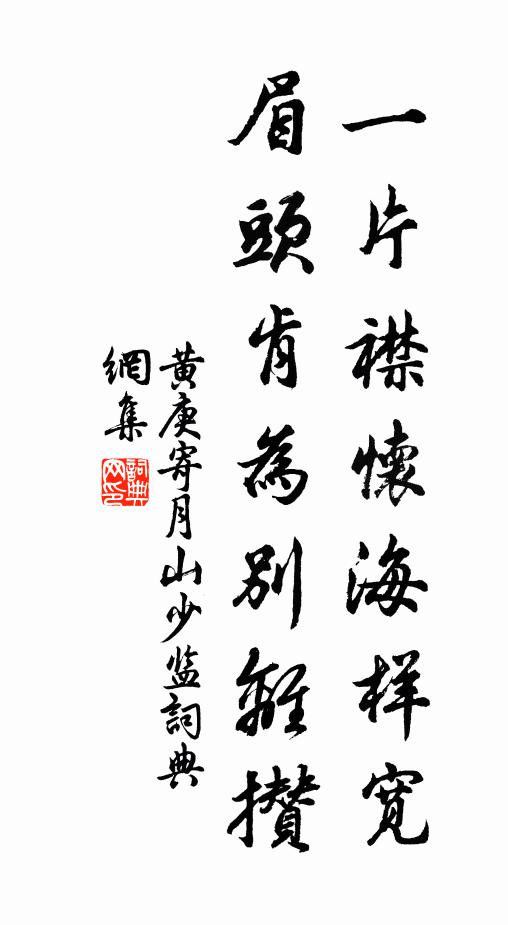 一片襟懷海样寬
眉頭肯為別離攢
黃庚寄月山少監詞典
網集
詞典網印